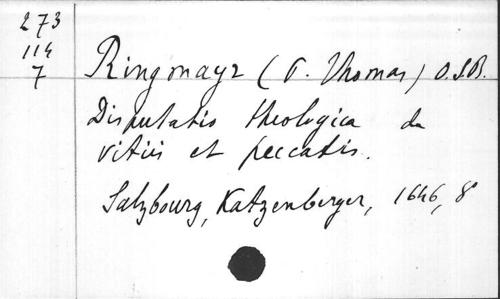 273
114
7
Ringmayr (P. Thomas) O.S.B.
Disputatio theologica de
vitiis et peccatis.
Salzbourg, Katzenberger, 1646, 8°